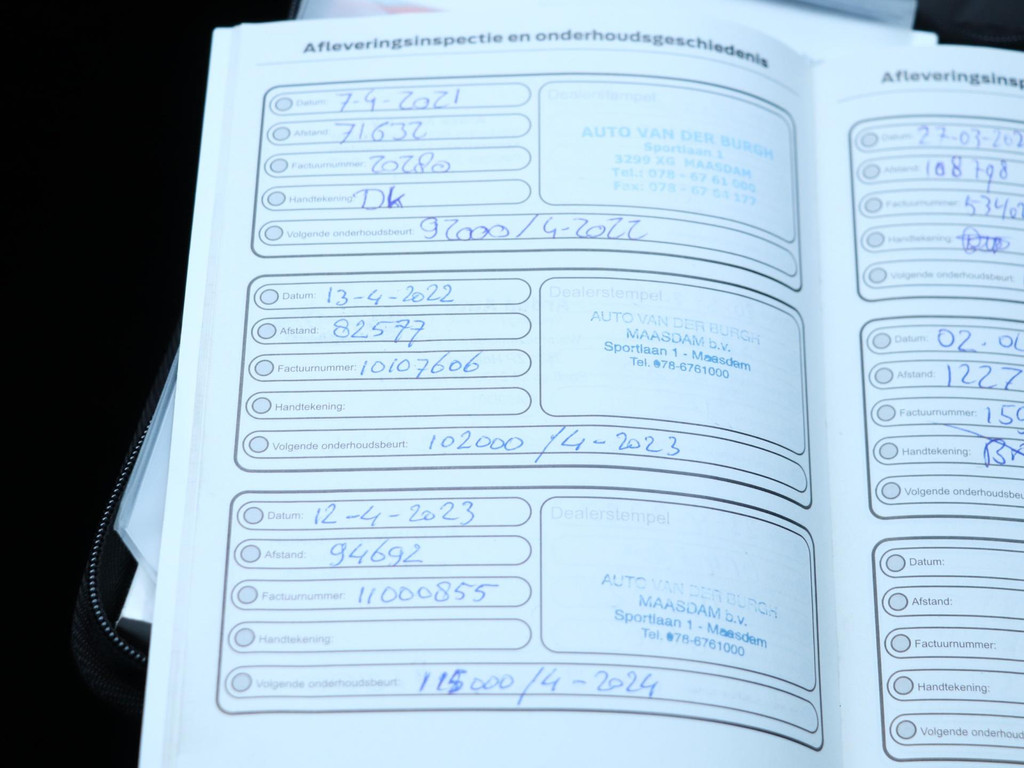 Afleveringsinspectie en onderhoudsgeschiedenis
Datum: 7-4-2021
Afstand: 71.632
Factuurnummer: 20280
Handtekening: Dk
Volgende onderhoudsbeurt: 92000 / 4-2022
Dealerstempel
AUTO VAN DER BURGH
Sportlaan 1
3299 XG MAASDAM
Tel.: 078 - 67 61 000
Fax: 078 - 67 64 177
Datum: 13-4-2022
Afstand: 82577
Factuurnummer: 10107606
Handtekening:
Volgende onderhoudsbeurt: 102000 / 4-2023
Dealerstempel
AUTO VAN DER BURGH
MAASDAM b.v.
Sportlaan 1 - Maasdam
Tel. 078-6761000
Datum: 12-4-2023
Afstand: 94692
Factuurnummer: 11000855
Handtekening:
Volgende onderhoudsbeurt: 115000 / 4-2024
Dealerstempel
AUTO VAN DER BURGH
MAASDAM b.v.
Sportlaan 1 - Maasdam
Tel. 078-6761000
Afleveringsinsp
Datum: 27-03-202
Afstand: 108798
Factuurnummer: 5340
Handtekening:
Volgende onderhoudsbeurt:
Datum: 02.0
Afstand: 1227
Factuurnummer: 159
Handtekening:
Volgende onderhoudsbeu
Datum:
Afstand:
Factuurnummer:
Handtekening:
Volgende onderhoud